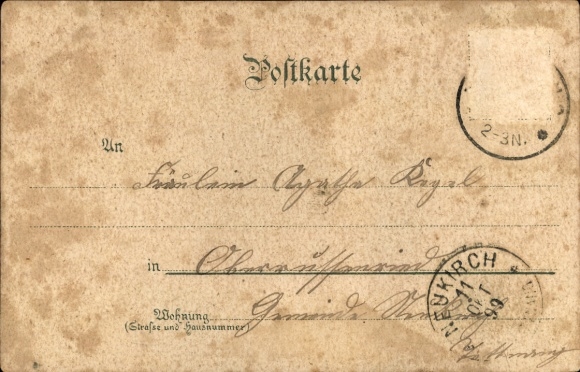 Postkarte
2-3N.
An
Fräulein Agathe Kegel
in Oberrussenried
NEUKIRCH
11
OKT
99
Wohnung
(Straße und Hausnummer)
Gemeinde
Tettnang